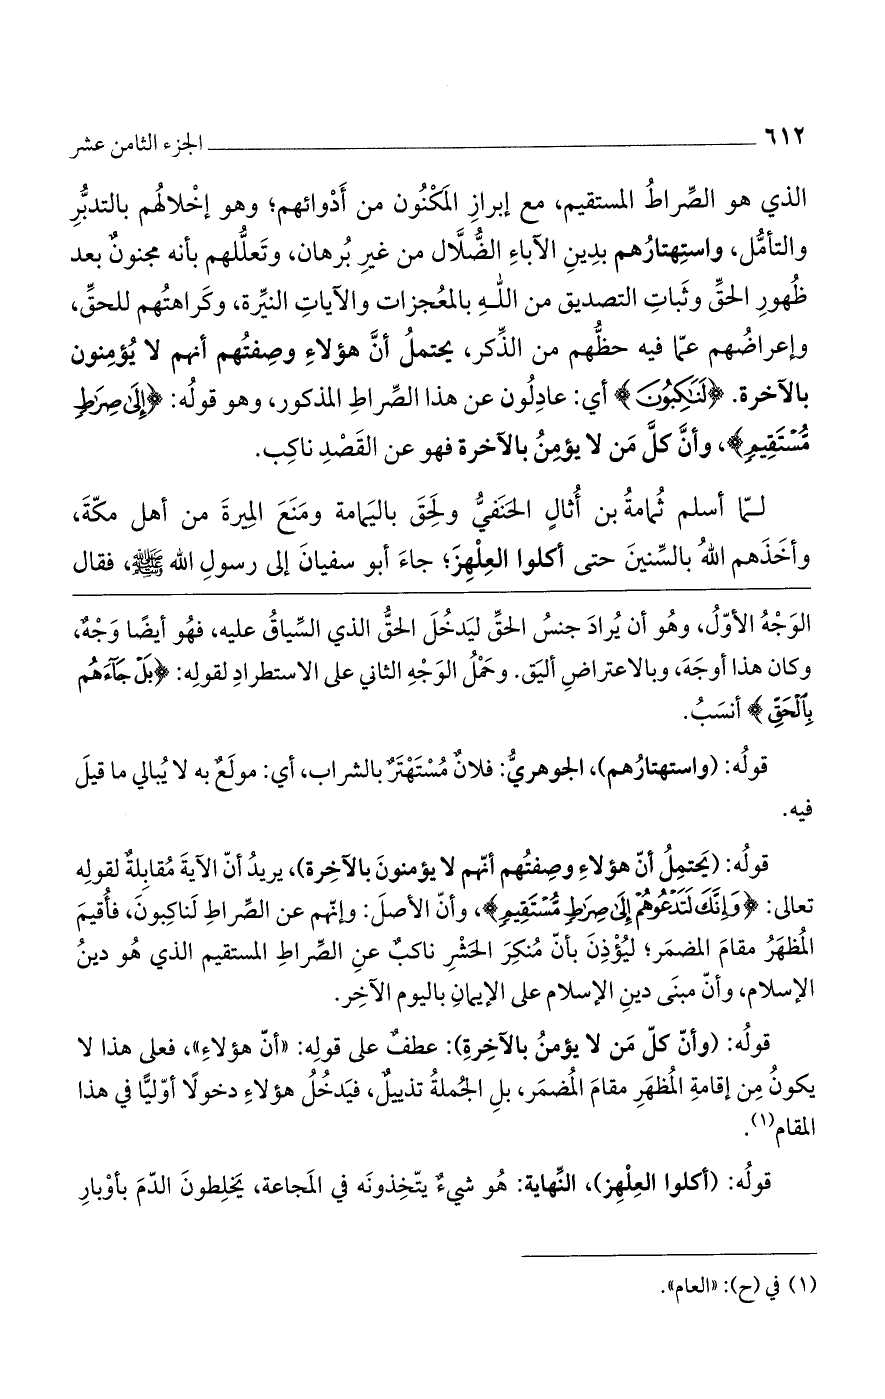 ٦١٢ ــــــــــــــــــــ الجزء الثامن عشر
الذي هو الصِّراطُ المستقيم، مع إبرازِ المَكْنُون من أَدْوائهم؛ وهو إخْلالهُم بالتدبُّرِ
والتأمُّل، واستِهتارُهم بدِينِ الآباءِ الضُّلَّال من غيرِ بُرهان، وتَعلُّلهم بأنه مجنونٌ بعد
ظُهورِ الحقِّ وثَباتِ التصديق من اللهِ بالمُعجزات والآياتِ النيِّرة، وكَراهتُهم للحقِّ،
وإعراضُهم عمّا فيه حظُّهم من الذِّكر، يحتملُ أنَّ هؤلاءِ وصِفتُهم أنهم لا يُؤمِنون
بالآخرة. ﴿لَنَٰكِبُونَ﴾ أي: عادِلُون عن هذا الصِّراطِ المذكور، وهو قولُه: ﴿إِلَىٰ صِرَٰطٍ
مُّسْتَقِيمٍ﴾، وأنَّ كلَّ مَن لا يؤمِنُ بالآخرة فهو عن القَصْدِ ناكِب.
لـمّا أسلم ثُمامةُ بن أُثالٍ الحَنَفيُّ ولَحِقَ باليَمامة ومَنَعَ المِيرةَ من أهل مكّةَ،
وأخَذَهم اللهُ بالسِّنينَ حتى أكلوا العِلْهِزَ؛ جاءَ أبو سفيانَ إلى رسولِ الله ﷺ، فقال
الوَجْهُ الأوّلُ، وهُو أن يُرادَ جنسُ الحقِّ ليَدخُلَ الحقُّ الذي السِّياقُ عليه، فهُو أيضًا وَجْهٌ،
وكان هذا أوجَهَ، وبالاعتراضِ أليَق. وحَمْلُ الوَجْهِ الثاني على الاستطرادِ لقولِه: ﴿بَلْ جَآءَهُم
بِٱلْحَقِّ﴾ أنسَبُ.
قولُه: (واستهتارُهم)، الجوهريُّ: فلانٌ مُسْتَهْتَرٌ بالشراب، أي: مولَعٌ به لا يُبالي ما قيلَ
فيه.
قولُه: (يَحتمِلُ أنّ هؤلاءِ وصِفتُهم أنّهم لا يؤمنونَ بالآخِرة)، يريدُ أنّ الآيةَ مُقابِلةٌ لقولِه
تعالى: ﴿وَإِنَّكَ لَتَدْعُوهُمْ إِلَىٰ صِرَٰطٍ مُّسْتَقِيمٍ﴾، وأنّ الأصلَ: وإنّهم عن الصِّراطِ لَناكِبونَ، فأُقيمَ
المُظهَرُ مقامَ المضمَر؛ ليُؤْذِنَ بأنّ مُنكِرَ الحَشْرِ ناكبٌ عنِ الصِّراطِ المستقيم الذي هُو دينُ
الإسلام، وأنّ مبنَى دينِ الإسلام على الإيمانِ باليوم الآخِر.
قولُه: (وأنّ كلّ مَن لا يؤمنُ بالآخِرةِ): عطفٌ على قولِه: «أنّ هؤلاءِ»، فعلى هذا لا
يكونُ مِن إقامةِ المُظهَرِ مقامَ المُضمَر، بلِ الجُملةُ تذييلٌ، فيَدخُلُ هؤلاءِ دخولًا أوّليًّا في هذا
المقام(١).
قولُه: (أكلوا العِلْهِز)، النِّهاية: هُو شيءٌ يتّخِذونَه في المَجاعة، يَخلِطونَ الدّمَ بأوْبارِ
(١) في (ح): «العام».